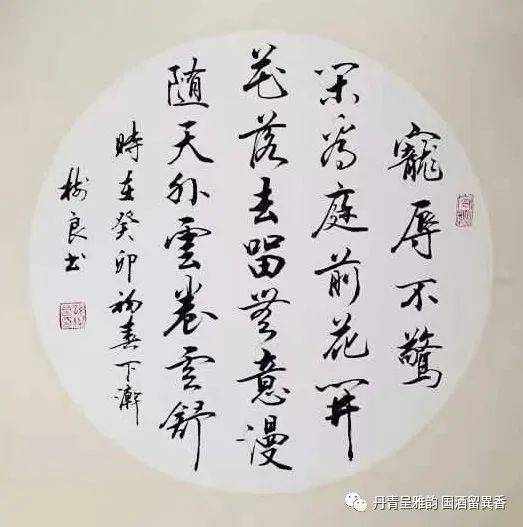 寵辱不驚
閑看庭前花開
花落去留無意漫
随天外雲卷雲舒
時在癸卯初春下澣
樹良书
丹青呈雅韵 国酒留異香